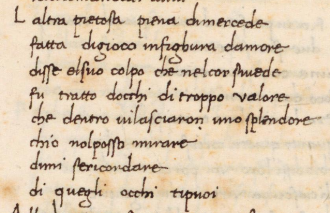 L altra pietosa piena dimercede
fatta digioco infighura damore
disse elsuo colpo che nelcor siuede
fu tratto docchi di troppo valore
che dentro uilasciaron uno splendore
chio nolposso mirare
dimi sericordare
di quegli occhi tipuoi